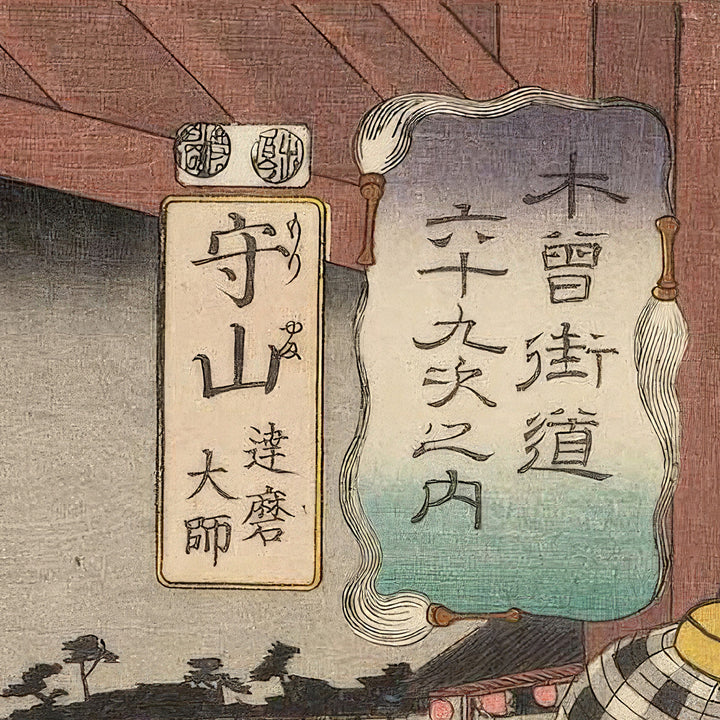 木曽街道
六十九次之内
守山
もり
やま
達磨
大師